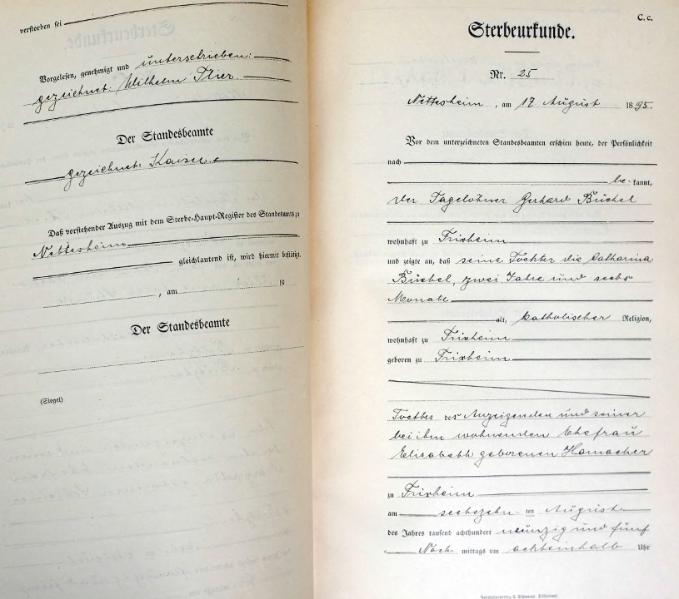 verstorben sei
Vorgelesen, genehmigt und unterschrieben:
gezeichnet: Wilhelm
Der Standesbeamte
gezeichnet: Kaiser
Daß vorstehender Auszug mit dem Sterbe-Haupt-Register des Standesamts zu
Nettesheim
gleichlautend ist, wird hiermit bestätigt.
, am 18
Der Standesbeamte
(Siegel)
C. c.
Sterbeurkunde.
Nr. 25
Nettesheim, am 17 August 1895.
Vor dem unterzeichneten Standesbeamten erschien heute, der Persönlichkeit
nach
be kannt,
der Tagelöhner Gerhard Büchel
wohnhaft zu Frixheim
und zeigte an, daß seine Tochter die Catharina
Büchel, zwei Jahre und sechs
Monate
alt, katholischer Religion,
wohnhaft zu Frixheim
geboren zu Frixheim
Tochter des Anzeigenden und seiner
bei ihm wohnenden Ehefrau
Elisabeth geborenen Hamacher
zu Frixheim
am sechszehn ten August
des Jahres tausend achthundert neunzig und fünf
Nach mittags um achteinhalb Uhr